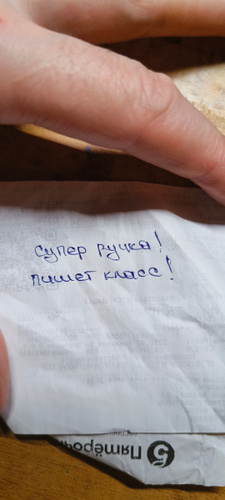 Супер ручка!
пишет класс!
5 Пятёроч